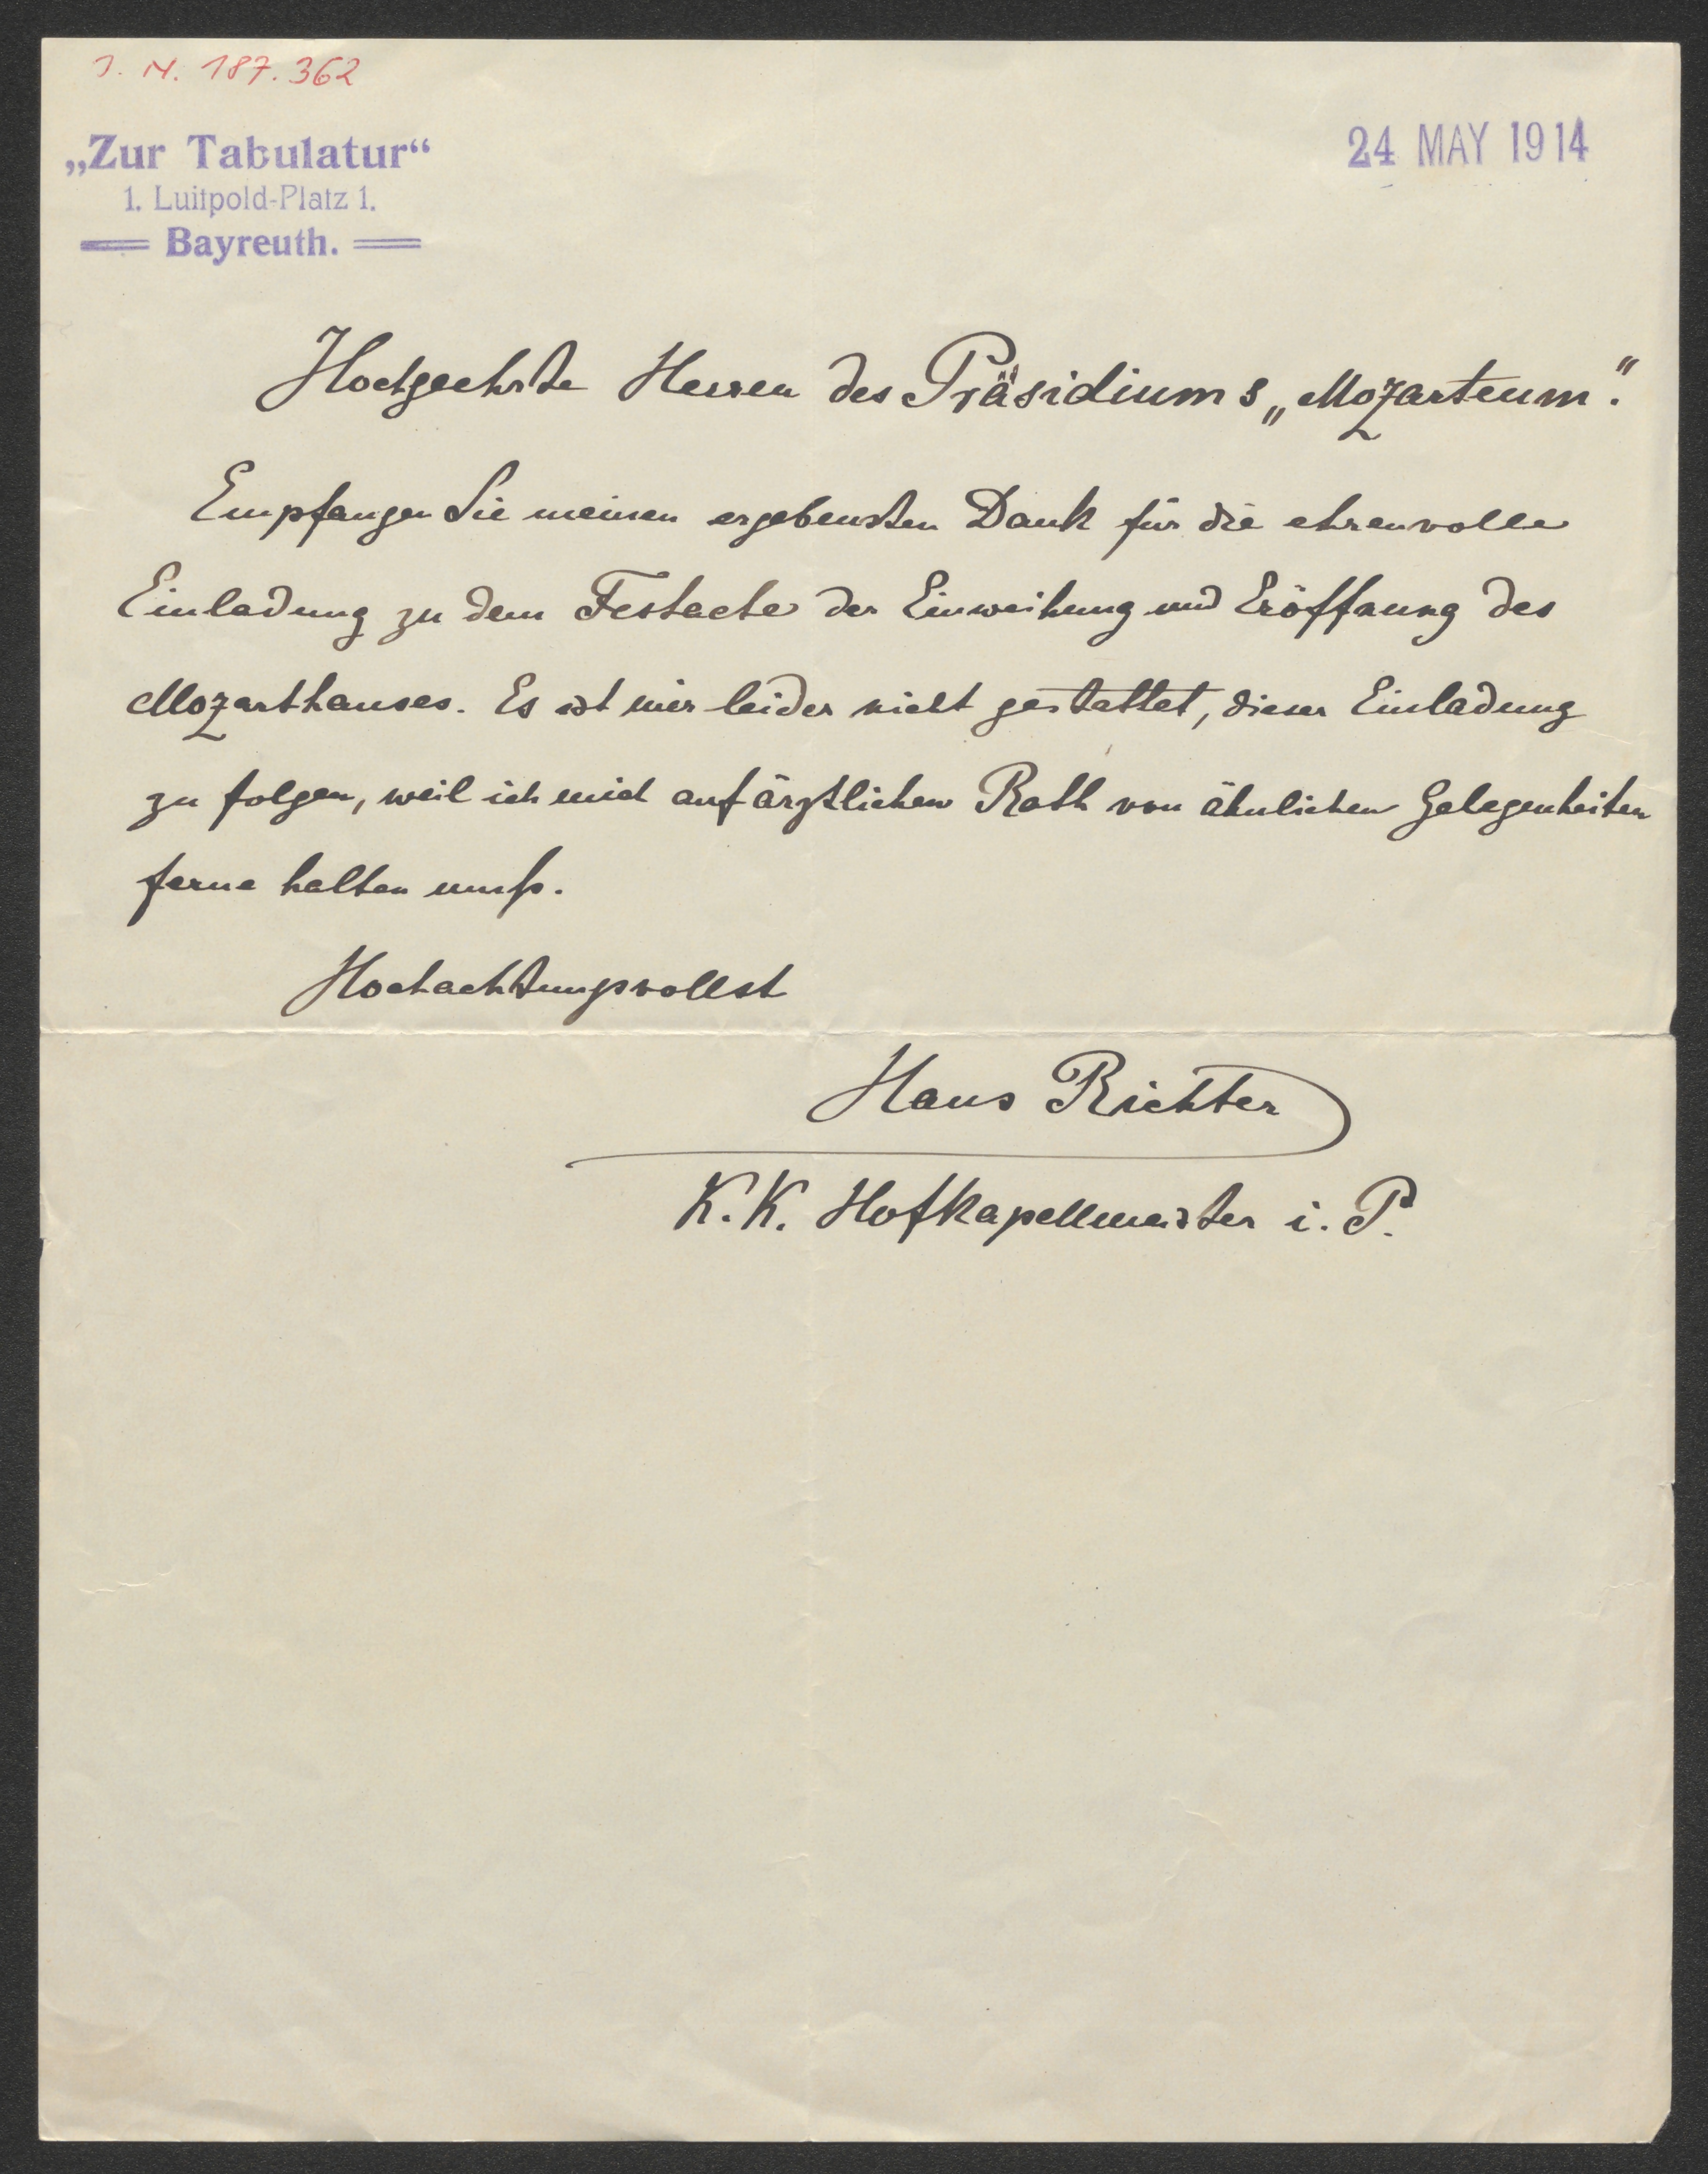 J. N. 187.362
„Zur Tabulatur“
1. Luitpold-Platz 1.
Bayreuth.
24 MAY 1914
Hochgeehrte Herren des Präsidiums „Mozarteum“.
Empfangen Sie meinen ergebensten Dank für die ehrenvolle
Einladung zu dem Festacte der Einweihung und Eröffnung des
Mozarthauses. Es ist mir leider nicht gestattet, dieser Einladung
zu folgen, weil ich mich auf ärztlichen Rath von ähnlichen Gelegenheiten
ferne halten muss.
Hochachtungsvollst
Hans Richter
K. K. Hofkapellmeister i. P.